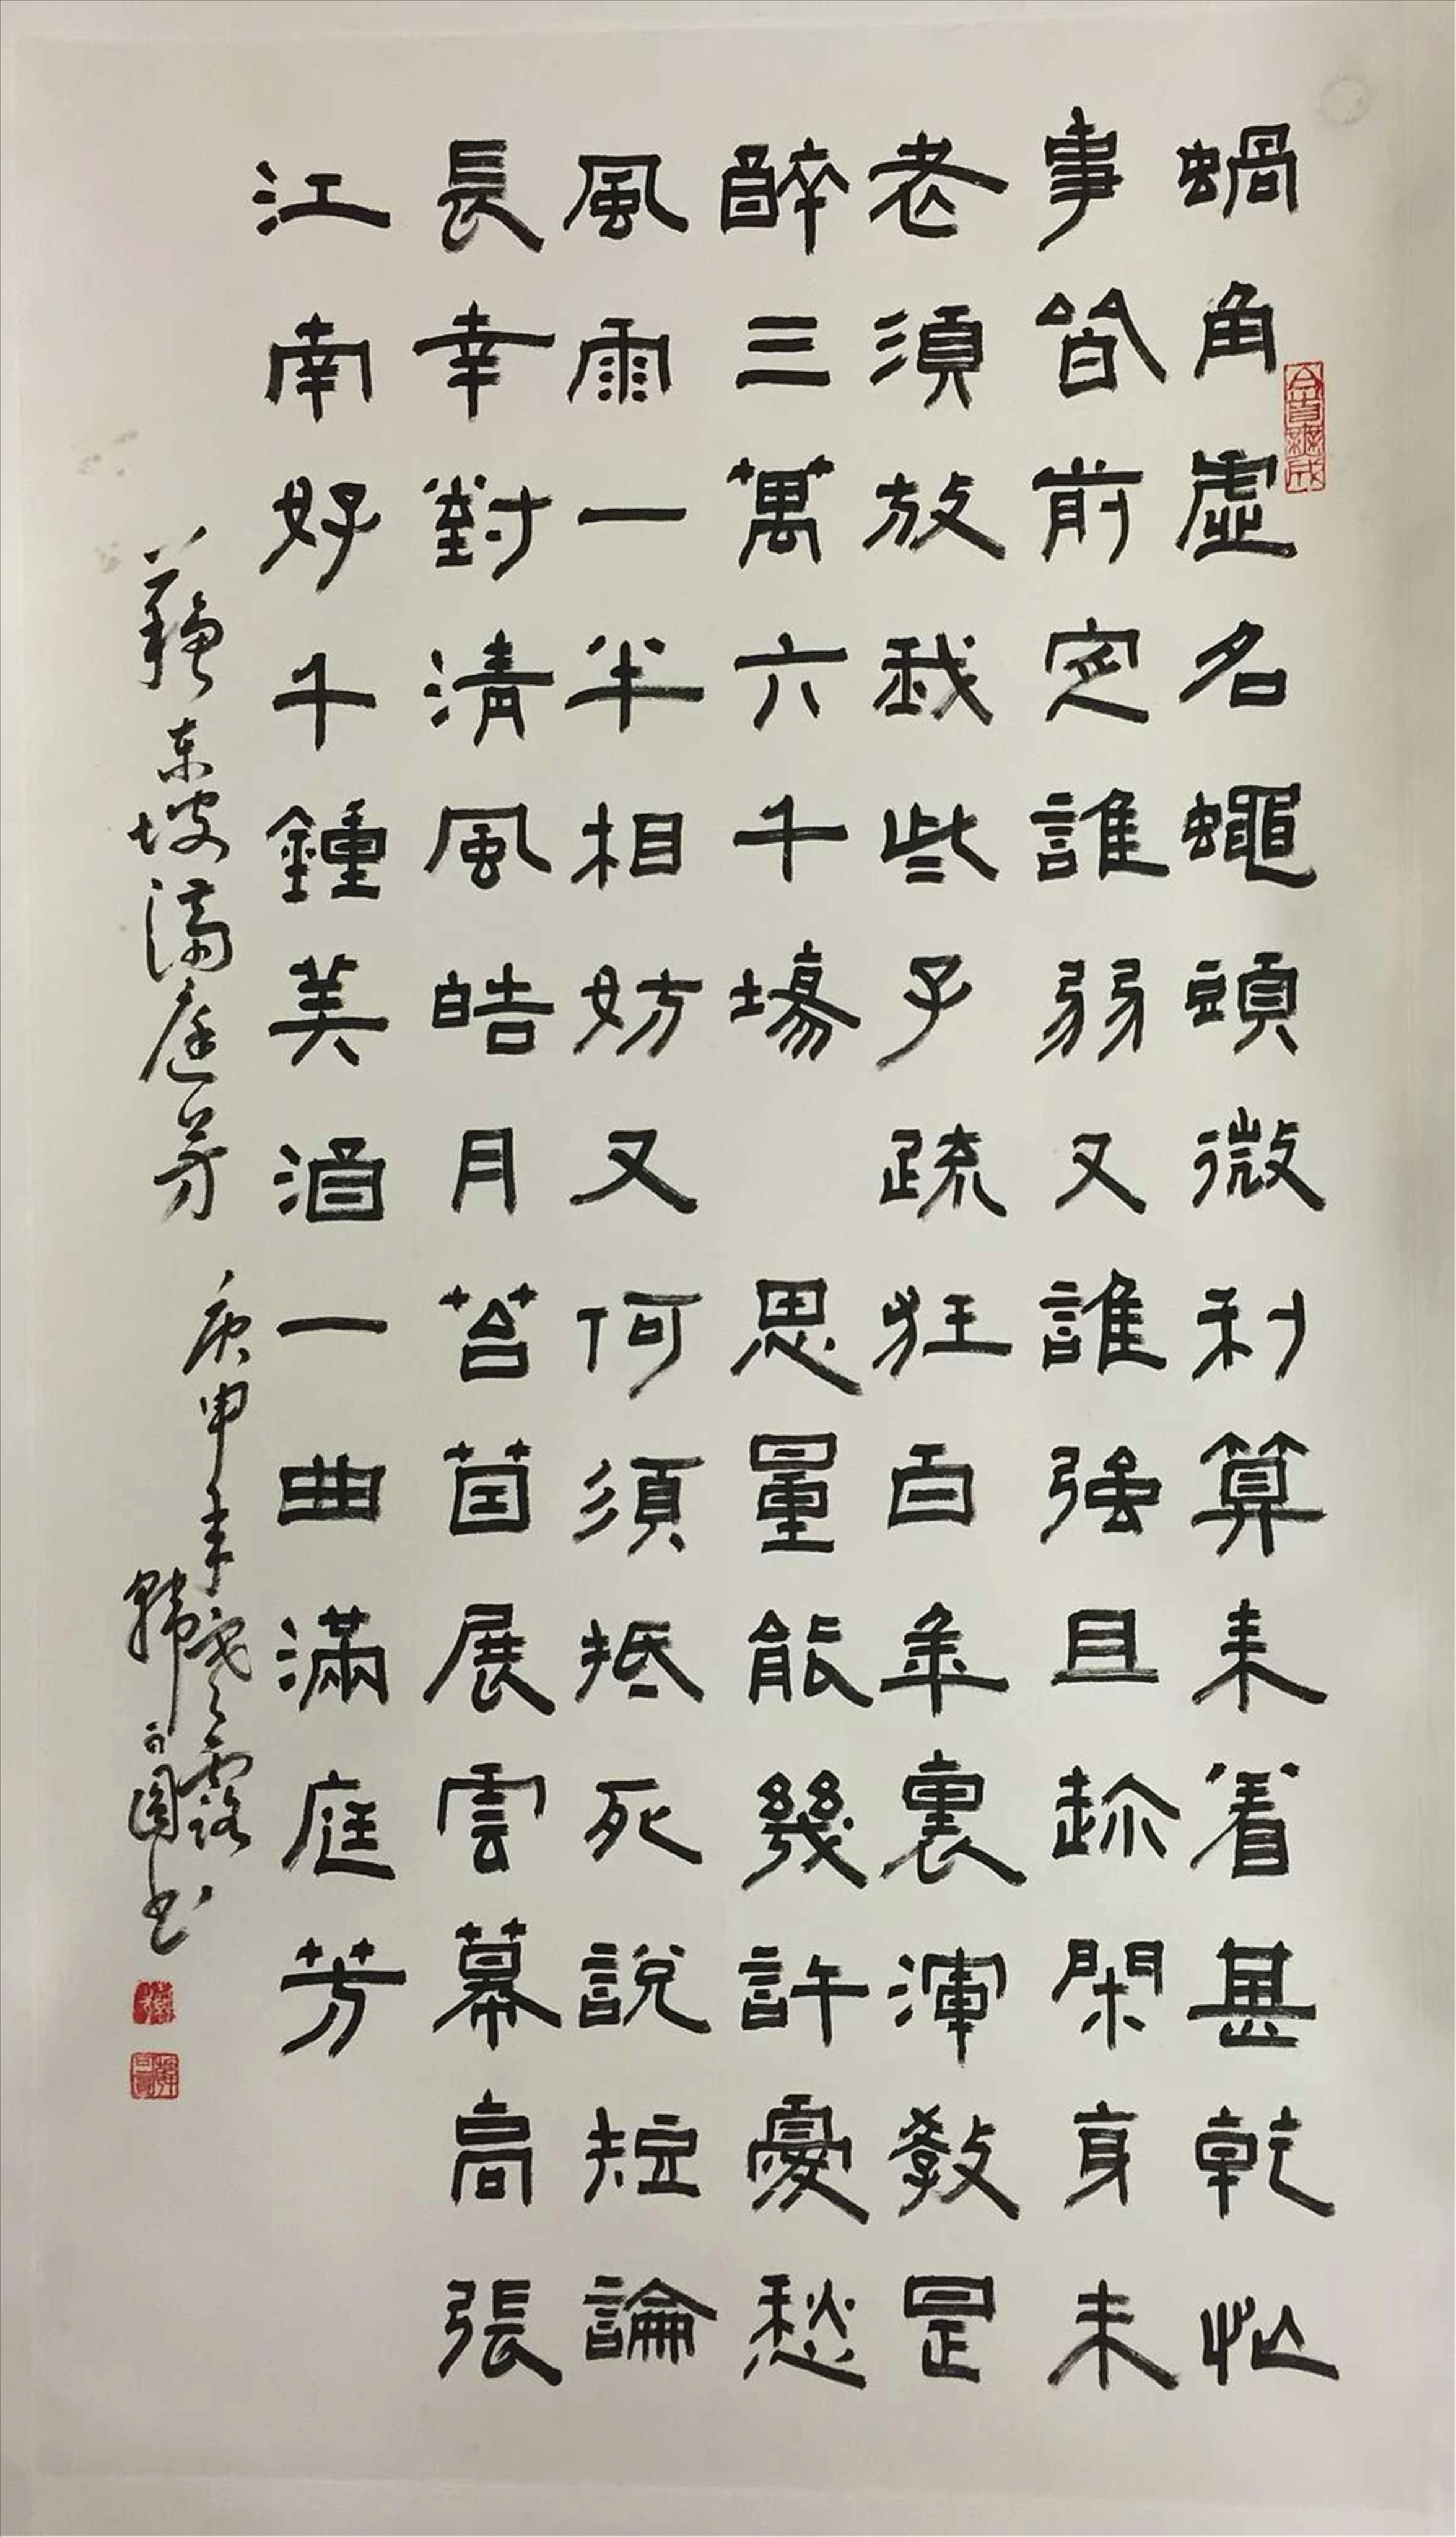 蝸角虛名蠅頭微利算来着甚乾忙
事皆前定誰弱又誰強且趂閑身未
老須放我些子疏狂百年裏渾教是
醉三萬六千場 思量能幾許憂愁
風雨一半相妨又何須抵死說短論
長幸對清風皓月苔茵展雲幕高張
江南好千鍾美酒一曲滿庭芳
蘇东坡滿庭芳 庚申年寒露
韓园书